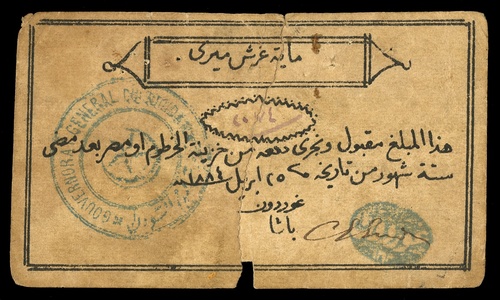 ماية غرش ميرى.
هذا المبلغ مقبول وتجرى دفعه من خزينة الخرطوم او مصر بعد مضى
ستة شهور من تاريخه ٢٥ ابريل ١٨٨٤
غوردون
باشا
GOUVERNORAT GENERAL DU SOUDAN